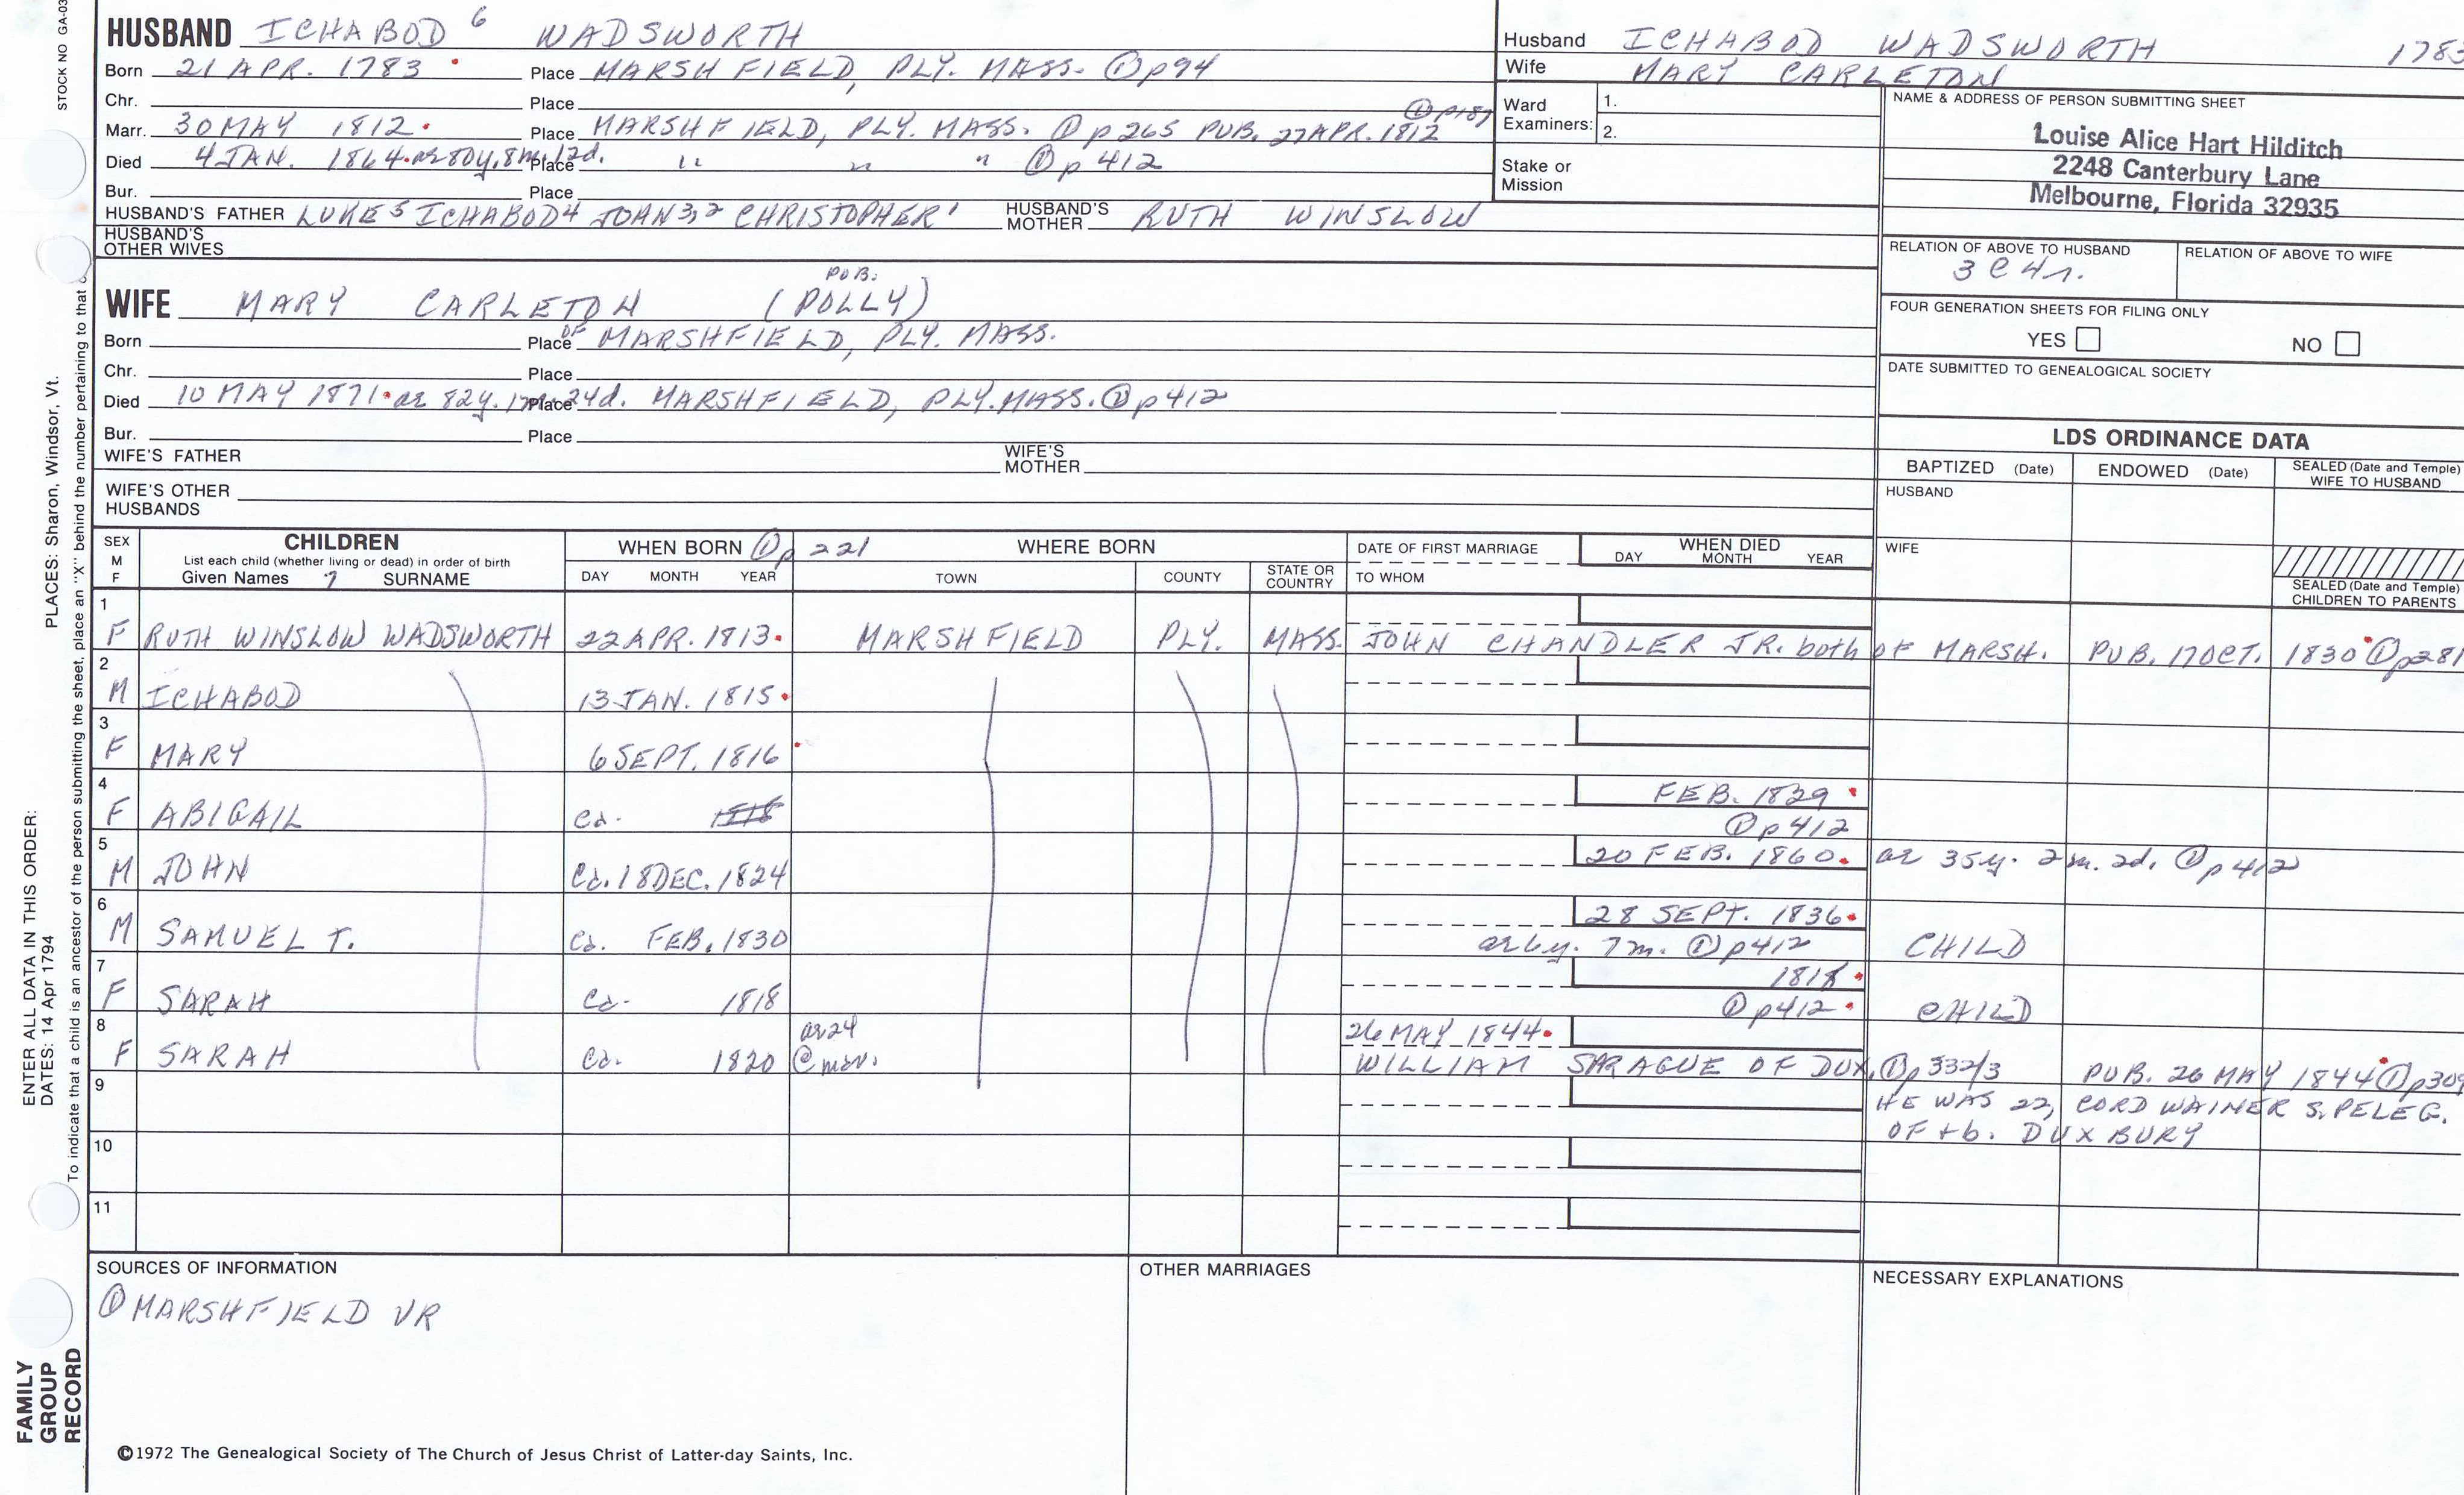 STOCK NO GA-03
HUSBAND ICHABOD 6 WADSWORTH
Born 21 APR. 1783 Place MARSHFIELD, PLY. MASS. ① p94
Chr. Place
① p187
Marr. 30 MAY 1812 Place MARSHFIELD, PLY. MASS. ① p265 PUB. 27 APR. 1812
Died 4 JAN. 1864 ae 80y, 8m, 12d. Place " " " ① p412
Bur. Place
HUSBAND'S FATHER LUKE 5 ICHABOD 4 JOHN 3,2 CHRISTOPHER 1 HUSBAND'S MOTHER RUTH WINSLOW
HUSBAND'S OTHER WIVES
Husband ICHABOD WADSWORTH 1783
Wife MARY CARLETON
Ward Examiners: 1.
2.
Stake or Mission
NAME & ADDRESS OF PERSON SUBMITTING SHEET
Louise Alice Hart Hilditch
2248 Canterbury Lane
Melbourne, Florida 32935
RELATION OF ABOVE TO HUSBAND RELATION OF ABOVE TO WIFE
3C4r.
FOUR GENERATION SHEETS FOR FILING ONLY
YES NO
DATE SUBMITTED TO GENEALOGICAL SOCIETY
PUB.
WIFE MARY CARLETON (POLLY)
Born Place OF MARSHFIELD, PLY. MASS.
Chr. Place
Died 10 MAY 1871 ae 82y. 17m 24d. Place MARSHFIELD, PLY. MASS. ① p412
Bur. Place
WIFE'S FATHER WIFE'S MOTHER
WIFE'S OTHER HUSBANDS
LDS ORDINANCE DATA
BAPTIZED (Date) ENDOWED (Date) SEALED (Date and Temple) WIFE TO HUSBAND
HUSBAND
WIFE
SEALED (Date and Temple) CHILDREN TO PARENTS
SEX M F
CHILDREN
List each child (whether living or dead) in order of birth
Given Names 7 SURNAME
WHEN BORN ① p 221 WHERE BORN
DAY MONTH YEAR TOWN COUNTY STATE OR COUNTRY
DATE OF FIRST MARRIAGE
TO WHOM
WHEN DIED
DAY MONTH YEAR
1 F RUTH WINSLOW WADSWORTH 22 APR. 1813 MARSHFIELD PLY. MASS. JOHN CHANDLER JR. both OF MARSH. PUB. 17 OCT. 1830 ① p281
2 M ICHABOD 13 JAN. 1815
3 F MARY 6 SEPT. 1816
4 F ABIGAIL Ca. FEB. 1829
① p412
5 M JOHN Ca. 18 DEC. 1824 20 FEB. 1860 ae 35y. 2m. 2d. ① p412
6 M SAMUEL T. Ca. FEB. 1830 28 SEPT. 1836
ae 6y. 7m. ① p412 CHILD
7 F SARAH Ca. 1818 1818
① p412 CHILD
8 F SARAH Ca. 1820 ae 24 @ mar. 26 MAY 1844
WILLIAM SPRAGUE OF DUX. ① p 332/3 PUB. 26 MAY 1844 ① p309
9 HE WAS 22, CORDWAINER S. PELEG.
OF + b. DUXBURY
10
11
SOURCES OF INFORMATION
① MARSHFIELD VR
OTHER MARRIAGES
NECESSARY EXPLANATIONS
©1972 The Genealogical Society of The Church of Jesus Christ of Latter-day Saints, Inc.
FAMILY GROUP RECORD
ENTER ALL DATA IN THIS ORDER:
DATES: 14 Apr 1794
PLACES: Sharon, Windsor, Vt.
To indicate that a child is an ancestor of the person submitting the sheet, place an "X" behind the number pertaining to that c